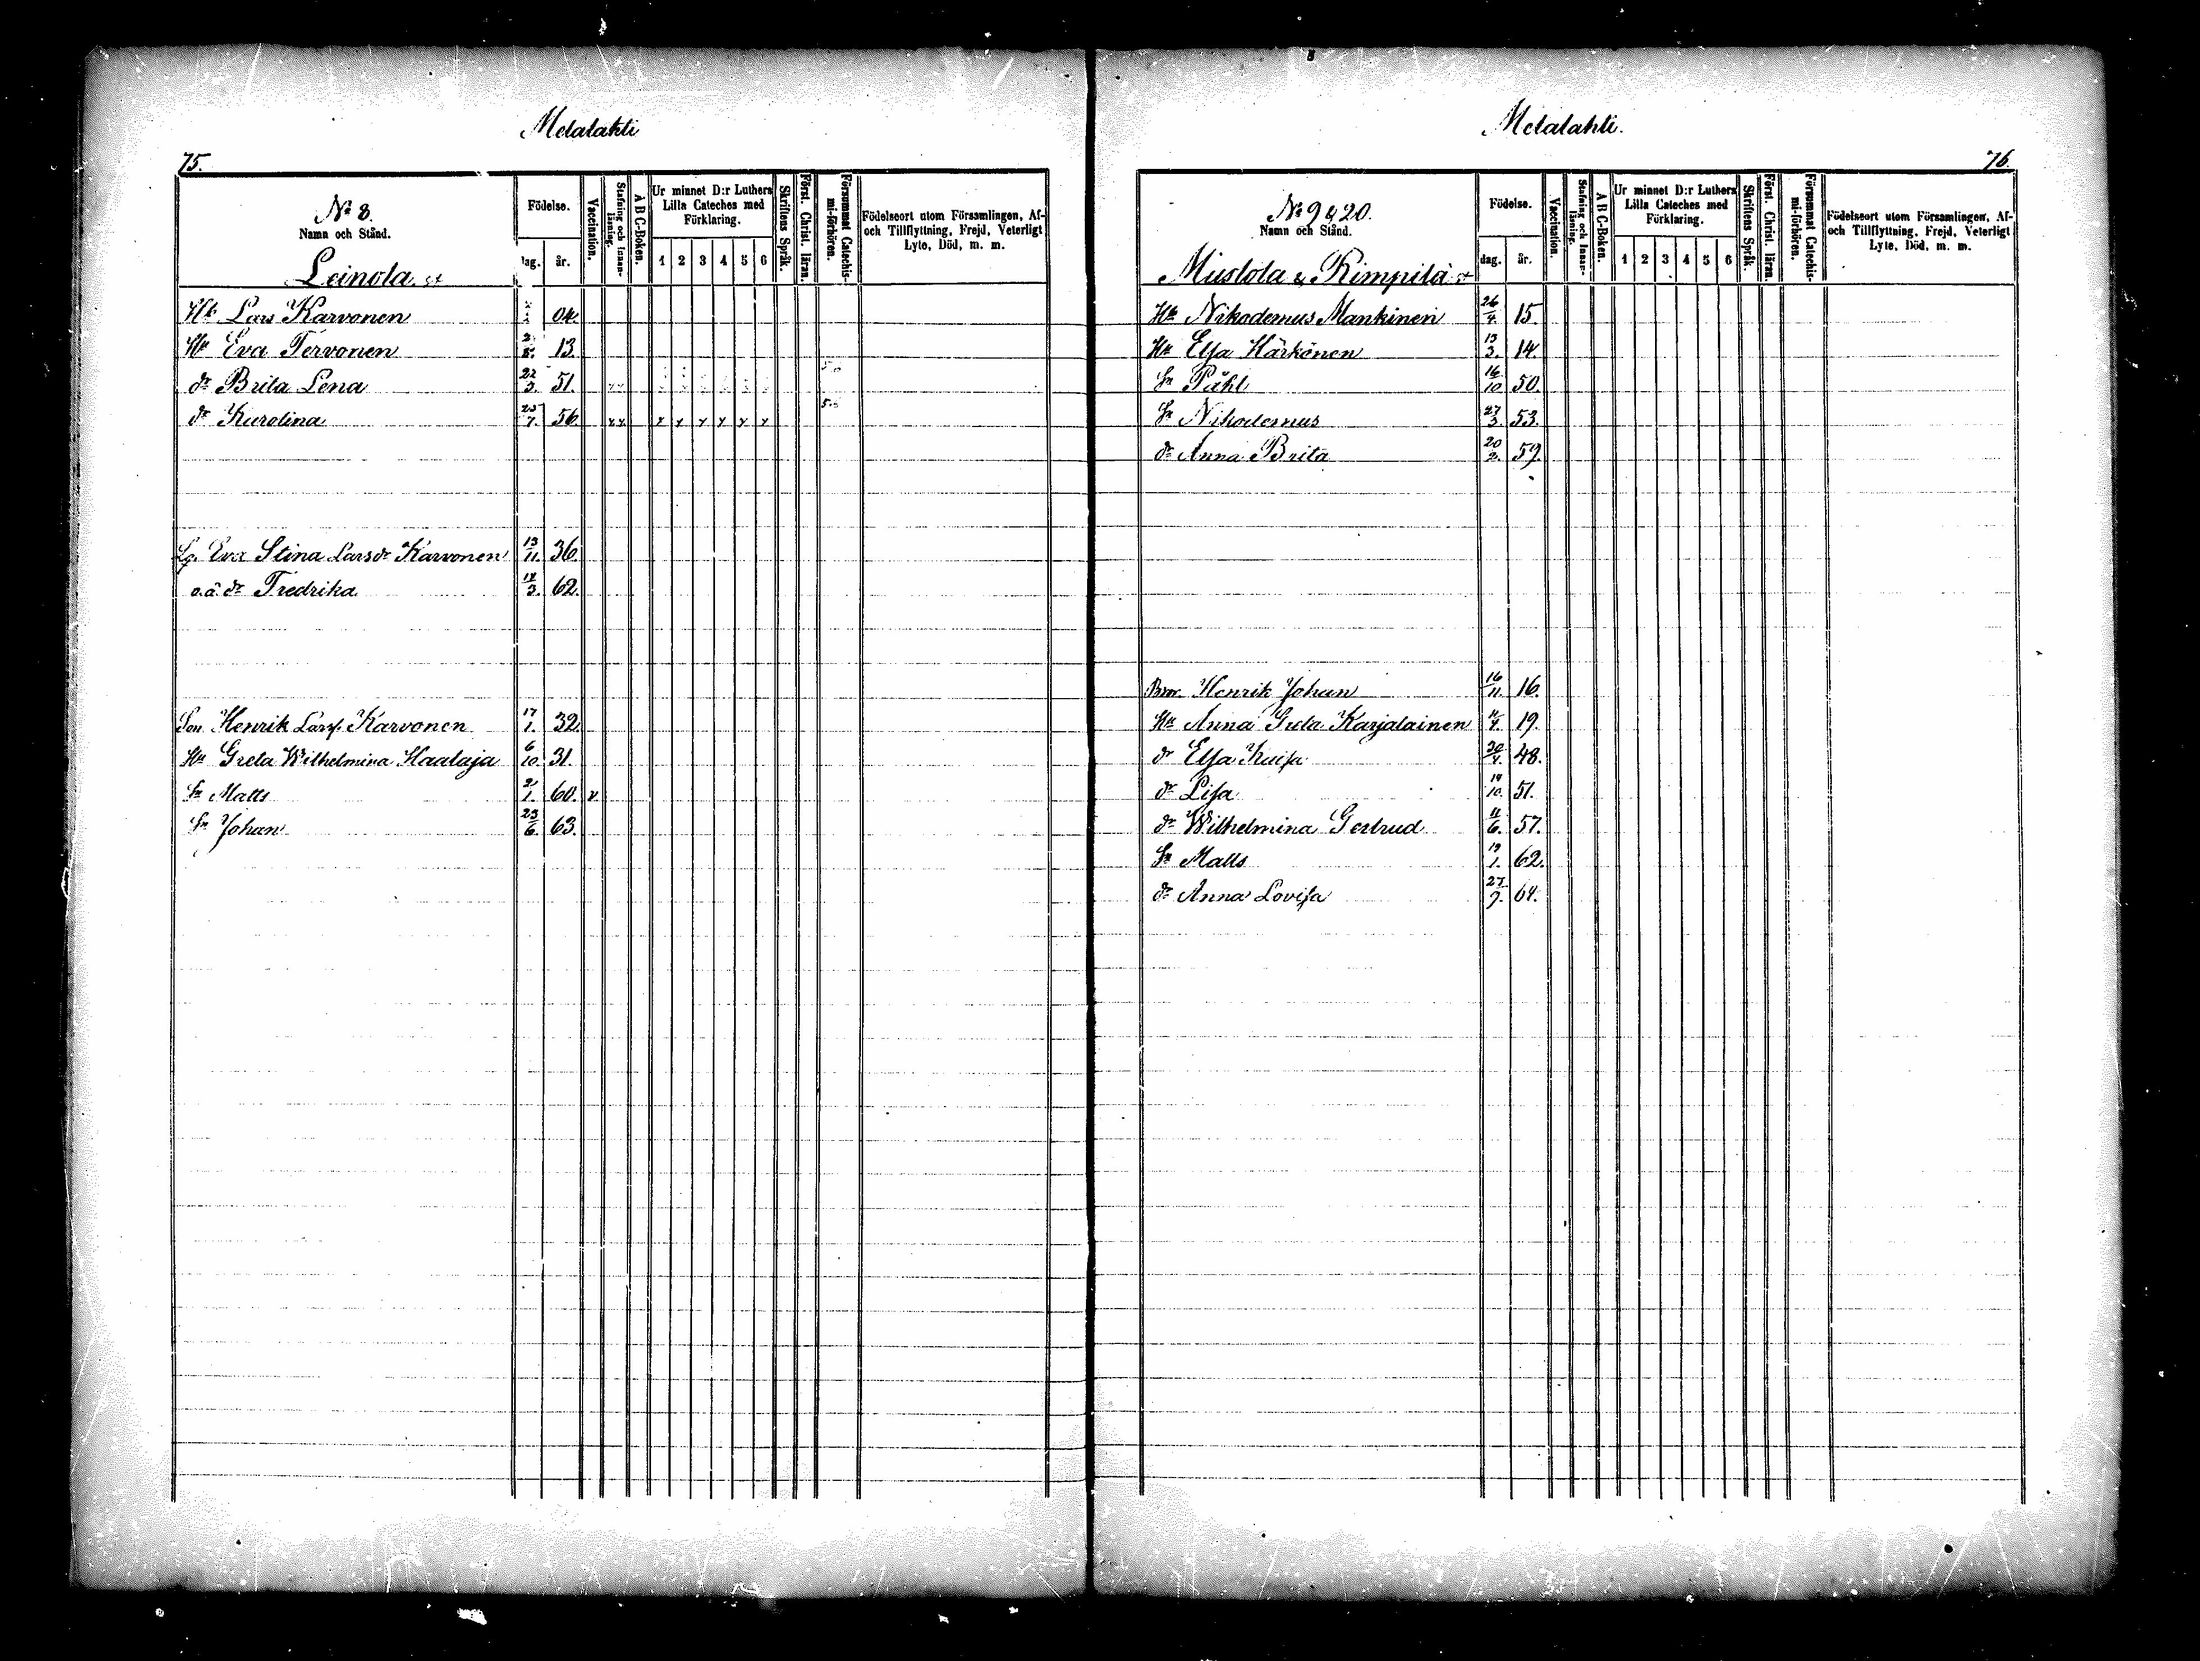 Metalahti
75.
No 8.
Namn och Stånd.
Leinola
Födelse.
dag. år.
Vaccination.
Stafning och Innan-läsning.
A B C-Boken.
Ur minnet D:r Luthers Lilla Cateches med Förklaring.
1 2 3 4 5 6
Skriftens Språk.
Först. Christ. läran.
Försummat Catechis-mi-förhören.
Födelseort utom Församlingen, Af- och Tillflyttning, Frejd, Veterligt Lyte, Död, m. m.
Hb Lars Karvonen 04.
Hu Eva Tervonen 13.
dr Brita Lena 22/3. 51.
dr Karolina 25/7. 56. x x x x x x x x
Lg. Eva Stina Larsdr Karvonen 13/11. 36.
o.ä. dr Fredrika 14/3. 62.
Son Henrik Larss. Karvonen 17/1. 32.
Hu Greta Wilhelmina Haataja 6/10. 31.
Sn Matts 2/1. 60. v
Sn Johan 23/6. 63.
Metalahti.
76.
No 9 & 20.
Namn och Stånd.
Mustola & Kimpilä
Födelse.
dag. år.
Vaccination.
Stafning och Innan-läsning.
A B C-Boken.
Ur minnet D:r Luthers Lilla Cateches med Förklaring.
1 2 3 4 5 6
Skriftens Språk.
Först. Christ. läran.
Försummat Catechis-mi-förhören.
Födelseort utom Församlingen, Af- och Tillflyttning, Frejd, Veterligt Lyte, Död, m. m.
Hb Nikodemus Mankinen 26/4. 15.
Hu Elsa Härkönen 13/3. 14.
Sn Påhl 16/10 50.
Sn Nikodemus 27/3. 53.
dr Anna Brita 20/2. 59.
Bror. Henrik Johan 16/11. 16.
Hu Anna Greta Karjalainen 11/4. 19.
dr Elsa Kaisa 30/4. 48.
dr Lisa 19/10. 51.
dr Wilhelmina Gertrud 11/6. 57.
Sn Matts 19/1. 62.
dr Anna Lovisa 27/9. 64.